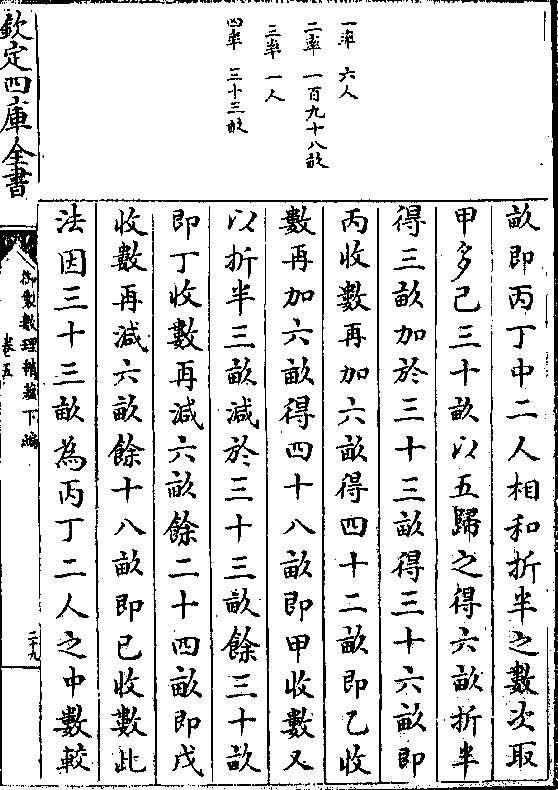 一率 六人
二率 一百九十八畝
三率 一人
四率 三十三畝
畝即丙丁中二人相和折半之數次取
甲多己三十畝以五歸之得六畝折半
得三畝加於三十三畝得三十六畝即
丙收數再加六畝得四十二畝即乙收
數再加六畝得四十八畝即甲收數又
以折半三畝減於三十三畝餘三十畝
即丁收數再減六畝餘二十四畝即戊
收數再減六畝餘十八畝即已收數此
法因三十三畝為丙丁二人之中數較
欽定四庫全書
御製數理精蘊下編
卷五
二十九